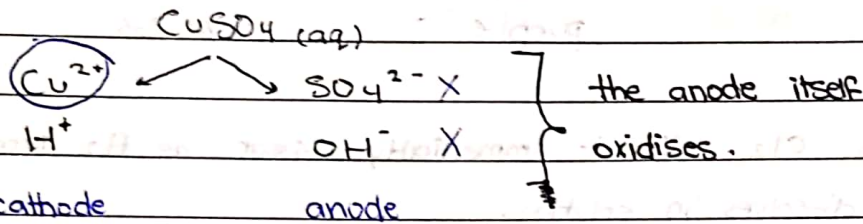 CuSO4 (aq)
Cu2+ SO4 2- X the anode itself
H+ OH- X oxidises.
cathode anode